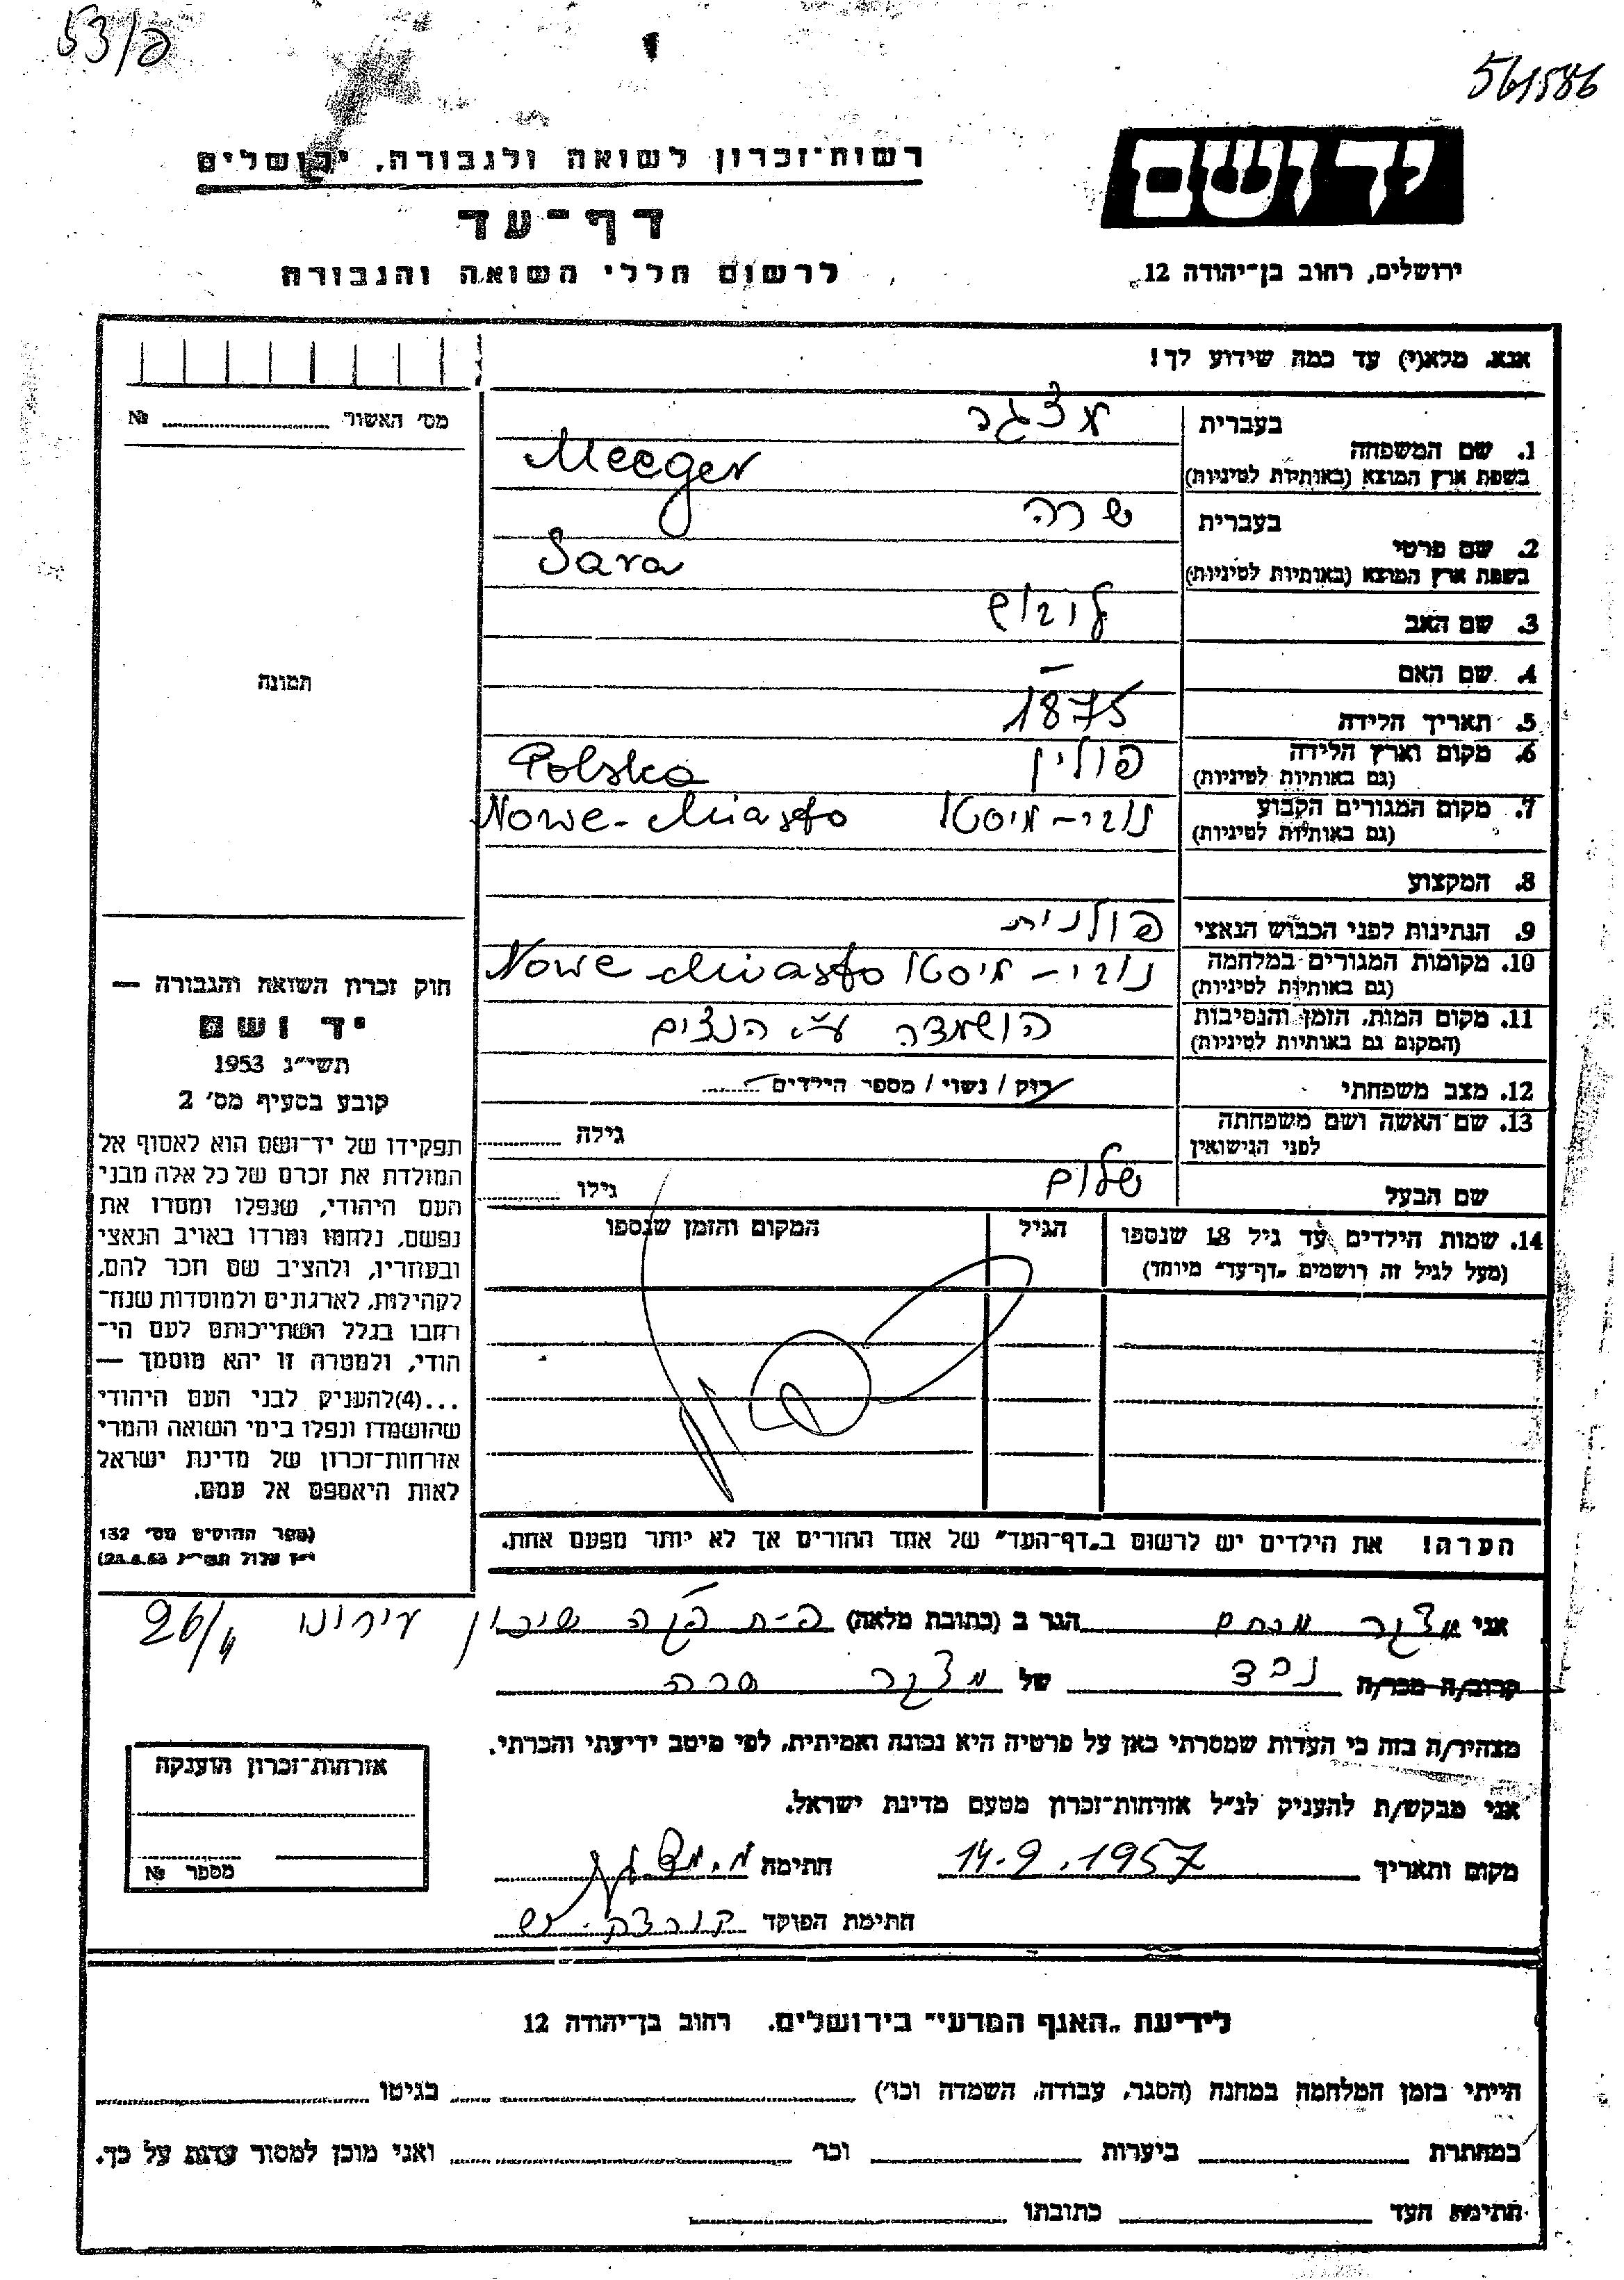 53/פ
561586
רשות־זכרון לשואה ולגבורה, ירושלים
יד ושם
דף־עד
לרשום חללי השואה והגבורה
ירושלים, רחוב בן־יהודה 12
אנא, מלא(י) עד כמה שידוע לך!
מס׳ האשור №
1. שם המשפחה
בעברית מצגר
בשפת ארץ המוצא (באותיות לטיניות) Mecger
2. שם פרטי
בעברית שרה
בשפת ארץ המוצא (באותיות לטיניות) Sara
3. שם האב לוביש
4. שם האם –
תמונה
5. תאריך הלידה 1875
6. מקום וארץ הלידה פולין Polska
(גם באותיות לטיניות)
7. מקום המגורים הקבוע נובי-מיסטו Nowe-Miasto
(גם באותיות לטיניות)
8. המקצוע
9. הנתינות לפני הכבוש הנאצי פולנית
10. מקומות המגורים במלחמה נובי-מיסטו Nowe Miasto
(גם באותיות לטיניות)
11. מקום המות, הזמן והנסיבות הושמדה ע״י הנצים
(המקום גם באותיות לטיניות)
12. מצב משפחתי רוק / נשוי / מספר הילדים
13. שם האשה ושם משפחתה גילה
לפני הנישואין
שם הבעל שלום גילו
14. שמות הילדים עד גיל 18 שנספו הגיל המקום והזמן שנספו
(מעל לגיל זה רושמים „דף־עד״ מיוחד)
חוק זכרון השואה והגבורה —
יד ושם
תשי״ג 1953
קובע בסעיף מס׳ 2
תפקידו של יד־ושם הוא לאסוף אל
המולדת את זכרם של כל אלה מבני
העם היהודי, שנפלו ומסרו את
נפשם, נלחמו ומרדו באויב הנאצי
ובעוזריו, ולהציב שם וזכר להם,
לקהילות, לארגונים ולמוסדות שנח־
רחבו בגלל השתייכותם לעם הי־
הודי, ולמטרה זו יהא מוסמך —
...(4)להעניק לבני העם היהודי
שהושמדו ונפלו בימי השואה והמרי
אזרחות־זכרון של מדינת ישראל
לאות היאספם אל עמם.
(ספר החוקים מס׳ 132
י״ז אלול תשי״ג 28.8.53)
הערה! את הילדים יש לרשום ב„דף־העד״ של אחד ההורים אך לא יותר מפעם אחת.
אני מצגר מנחם הגר ב (כתובת מלאה) פ-ת קפה שיכון עירוני 26/4
קרוב/ה מכר/ה נכד של מצגר שרה
מצהיר/ה בזה כי העדות שמסרתי כאן על פרטיה היא נכונה ואמיתית, לפי מיטב ידיעתי והכרתי.
אני מבקש/ת להעניק לנ״ל אזרחות־זכרון מטעם מדינת ישראל.
מקום ותאריך 14.9.1957 חתימה
חתימת הפוקד
אזרחות־זכרון הוענקה
מספר №
לידיעת „האגף המדעי״ בירושלים, רחוב בן־יהודה 12
הייתי בזמן המלחמה במחנה (הסגר, עבודה, השמדה וכו׳) בגיטו
במחתרת ביערות וכו׳ ואני מוכן למסור עדות על כך.
חתימת העד כתובתו